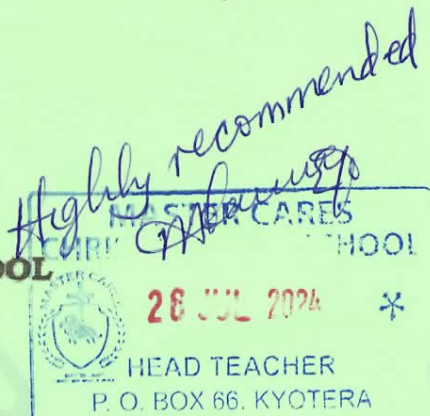 Highly recommended
MASTER CARES
CHRI HOOL
OOL
MASTER CARES
26 JUL 2024 *
HEAD TEACHER
P. O. BOX 66. KYOTERA